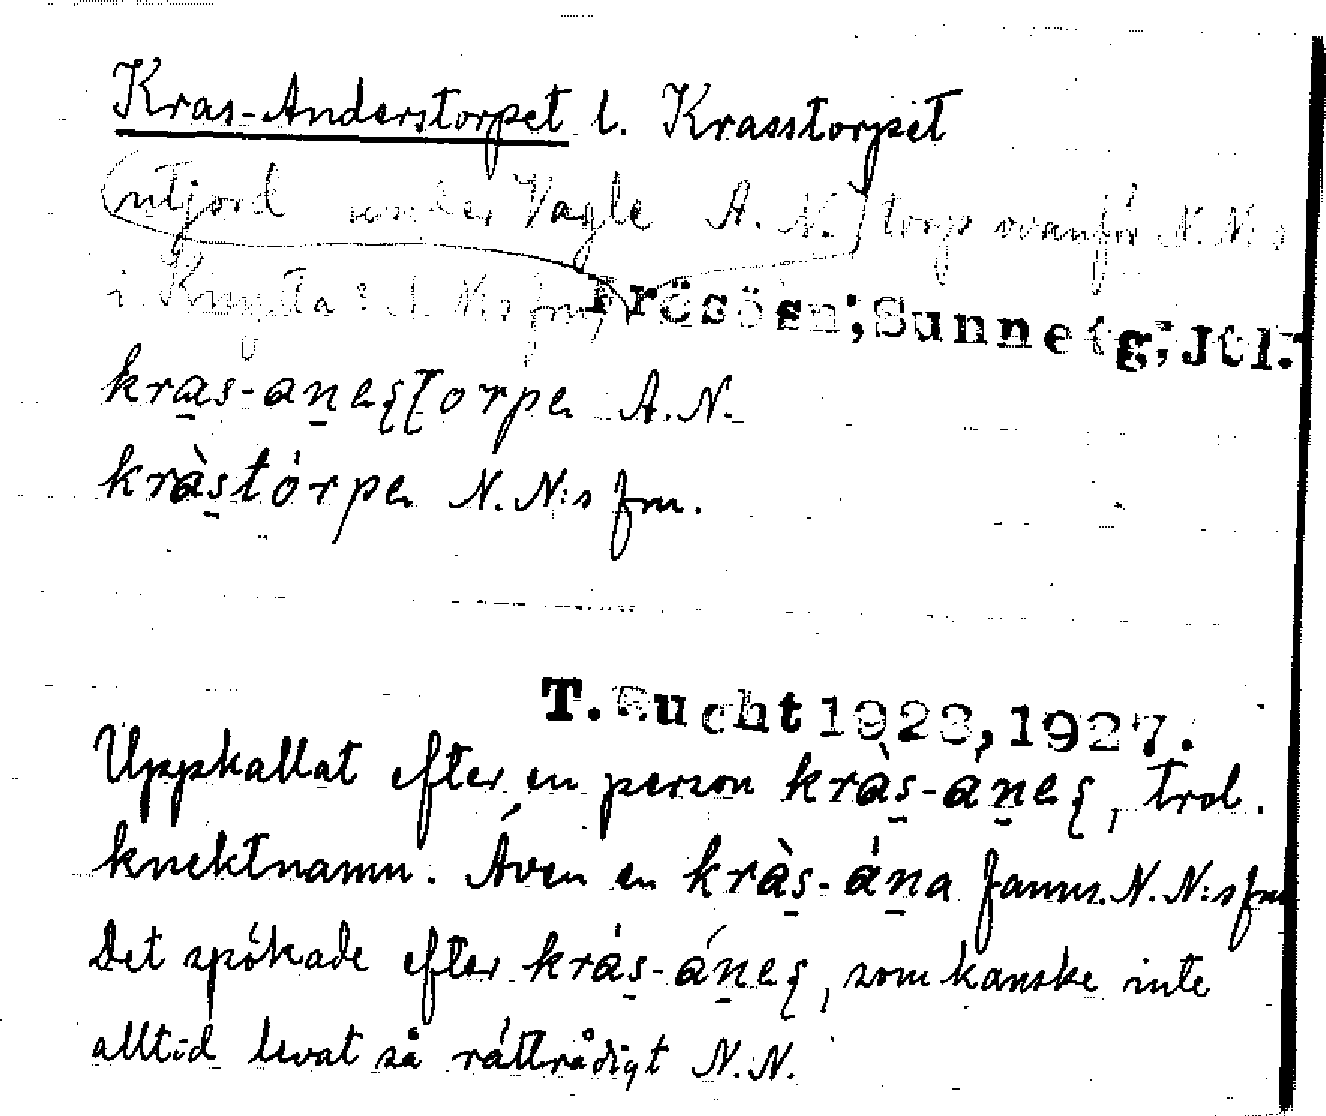 Kras-Anderstorpet l. Krasstorpet
(utjord under Vagle A. N.) torp ovanför N. N:s
i Knytta : A. N:s fm.
Frösösn; Sunne tg; Jtl.
kras-aneʂʈorpe A. N.
kràstórpe N. N:s fm.
T. Bucht 1923, 1927.
Uppkallat efter en person kràs-áneʂ, trol.
knektnamn. Även en kràs-ána fanns. N. N:s fm
Det spökade efter krás-áneʂ, som kanske inte
alltid levat så rättrådigt N. N.